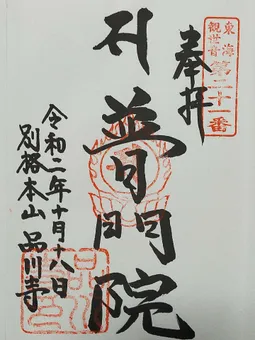 東海
観世音
第三十一番
奉拝
普門院
令和二年十月十八日
別格本山 品川寺